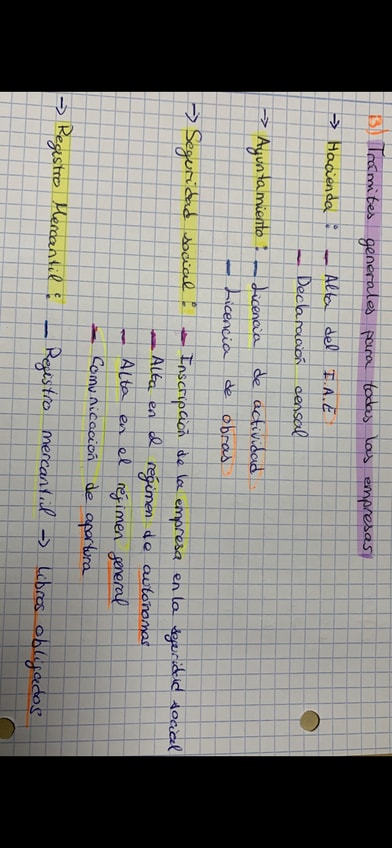 B) Trámites generales para todas las empresas
→ Hacienda: - Alta del I.A.E.
- Declaración censal
→ Ayuntamiento: - Licencia de actividad.
- Licencia de obras.
→ Seguridad social: - Inscripción de la empresa en la seguridad social
- Alta en el régimen de autónomos
- Alta en el régimen general
- Comunicación de apertura
→ Registro Mercantil: - Registro mercantil → libros obligados